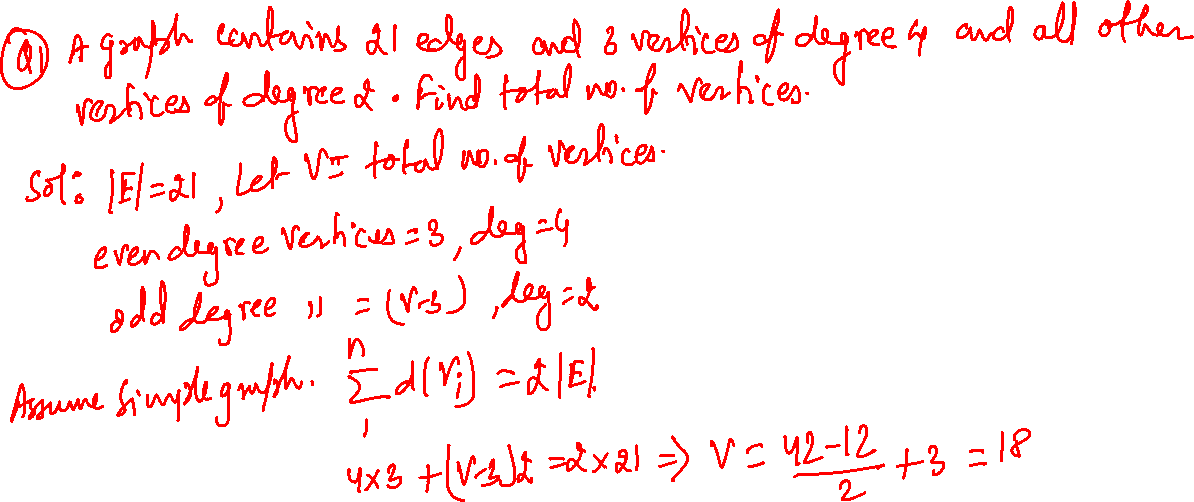 Q1 A graph contains 21 edges and 3 vertices of degree 4 and all other
vertices of degree 2. Find total no. of vertices.
Sol: |E|=21, Let V= total no. of vertices.
even degree vertices = 3, deg=4
odd degree " = (V-3), deg=2
Assume simple graph. n∑1 d(Vi) = 2|E|
4×3 + (V-3)2 = 2×21 ⇒ V = (42-12)/2 + 3 = 18